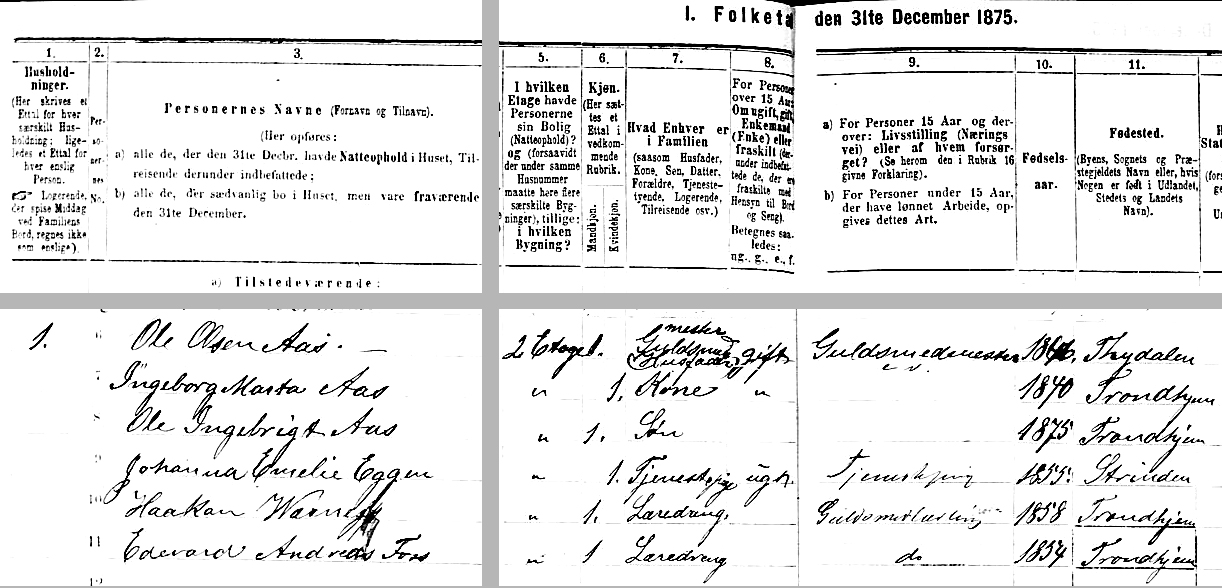 I. Folketæ den 31te December 1875.
1. 2. 3. 5. 6. 7. 8. 9. 10. 11.
Hushold-
ninger.
(Her skrives et
Ettal for hver
særskilt Hus-
holdning; lige-
ledes et Ettal for
hver enslig
Person.
☞ Logerende,
der spise Middag
ved Familiens
Bord, regnes ikke
som enslige).
Per-
so-
ner-
nes
No.
Personernes Navne (Fornavn og Tilnavn).
(Her opføres:
a) alle de, der den 31te Decbr. havde Natteophold i Huset, Til-
reisende derunder indbefattede;
b) alle de, der sædvanlig bo i Huset, men vare fraværende
den 31te December.
a) Tilstedeværende:
I hvilken
Etage havde
Personerne
sin Bolig
(Natteophold)?
og (forsaavidt
der under samme
Husnummer
maatte høre flere
særskilte Byg-
ninger), tillige:
i hvilken
Bygning?
Kjøn.
(Her sæt-
tes et
Ettal i
vedkom-
mende
Rubrik.
Mandkjøn.
Kvindekjøn.
Hvad Enhver er
i Familien
(saasom Husfader,
Kone, Søn, Datter,
Forældre, Tjeneste-
tyende, Logerende,
Tilreisende osv.)
For Persone
over 15 Aar:
Om ugift, gift,
Enkemand
(Enke) eller
fraskilt (de-
under indbefat-
tede de, der er
fraskilte med
Hensyn til Bord
og Seng).
Betegnes saa-
ledes:
ug., g., e., f.
a) For Personer 15 Aar og der-
over: Livsstilling (Nærings
vei) eller af hvem forsør-
get? (Se herom den i Rubrik 16
givne Forklaring).
b) For Personer under 15 Aar,
der have lønnet Arbeide, op-
gives dettes Art.
Fødsels-
aar.
Fødested.
(Byens, Sognets og Præ-
stegjeldets Navn eller, hvis
Nogen er født i Udlandet,
Stedets og Landets
Navn).
1. 6 Ole Olsen Aas. 2 Etage 1. Guldsmedmester Husfader gift Guldsmedmester Thydalen
7 Ingeborg Marta Aas " 1. Kone " 1840 Trondhjem
8 Ole Ingebrigt Aas " 1. Søn 1875 Trondhjem
9 Johanna Emelie Eggen " 1. Tjenestepige ugft. Tjenestepige 1855. Strinden
10 Haakan " 1. Læredreng. Guldsmedlærling 1858 Trondhjem
11 Edevard Andreas Foss " 1 Læredreng do 1854 Trondhjem